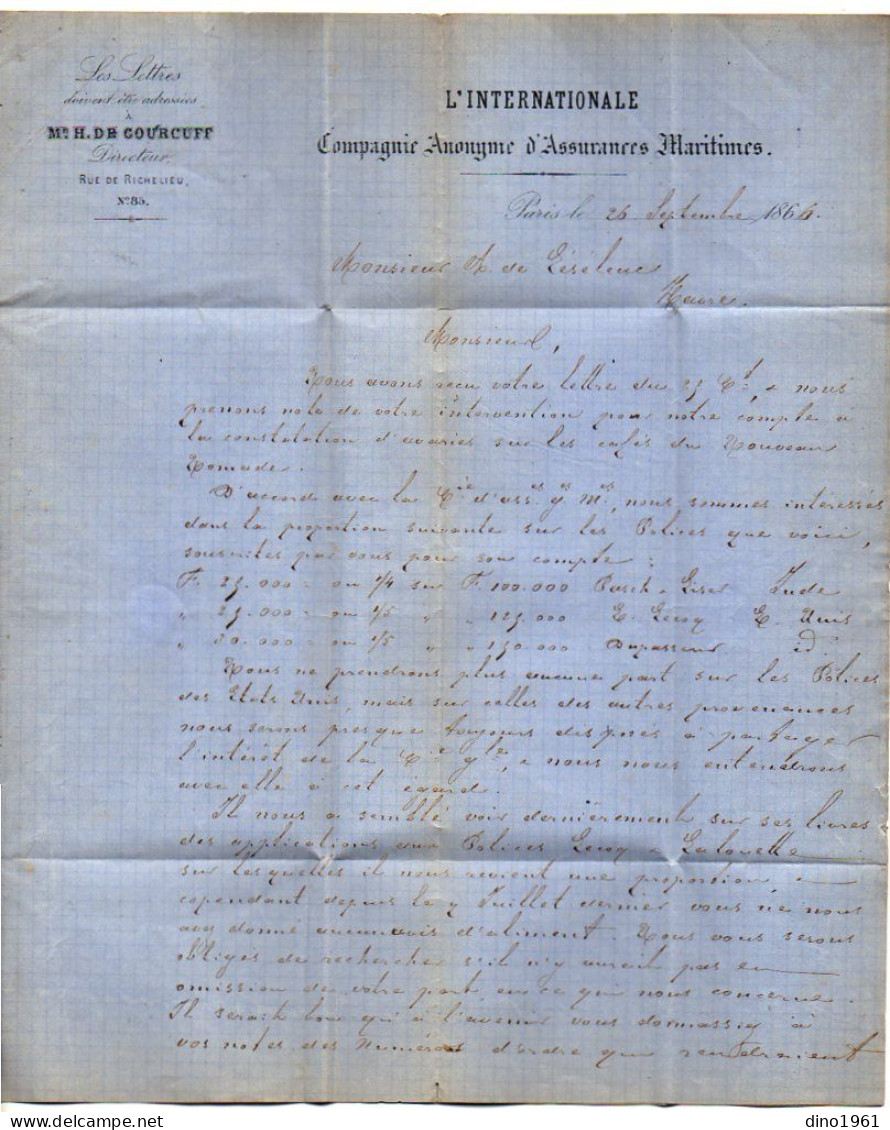 Les Lettres
doivent être adressées
à
MR. H. DE GOURCUFF
Directeur.
RUE DE RICHELIEU,
No. 85.
L'INTERNATIONALE
Compagnie Anonyme d'Assurances Maritimes.
Paris le 26 Septembre 1866.
Monsieur A. de
Havre.
Monsieur,
Nous avons reçu votre lettre du 25 Ct, & nous
prenons note de votre intervention pour notre compte à
la constatation d'avaries sur les cafés du Nouveau
Nomade.
D'accord avec la Cie d'assces gles Mes, nous sommes intéressés
dans la proportion suivante sur les Polices que voici,
souscrites par vous pour son compte :
F. 25.000 = ou 1/4 sur F. 100.000 Inde
" 25.000 = ou 1/5 " " 125.000 E. Lecoq E. Unis
" 30.000 = ou 1/5 " " 150.000 Dupasseur id
Nous ne prendrons plus aucune part sur les Polices
des Etats Unis, mais sur celles des autres provenances
nous serons presque toujours disposés à partager
l'intérêt de la Cie Gle, & nous nous entendrons
avec elle à cet égard.
Il nous a semblé voir dernièrement sur ses livres
des applications aux Polices Lecoq & Lalouette
sur lesquelles il nous revient une proportion, &
cependant depuis le 7 Juillet dernier vous ne nous
avez donné aucun avis d'aliment. Nous vous serons
obligés de rechercher s'il n'y aurait pas eu
omission de votre part, en ce qui nous concerne.
Il serait bon qu'à l'avenir vous donnassiez à
vos notes des Numéros d'ordre que rendraient
dino1961